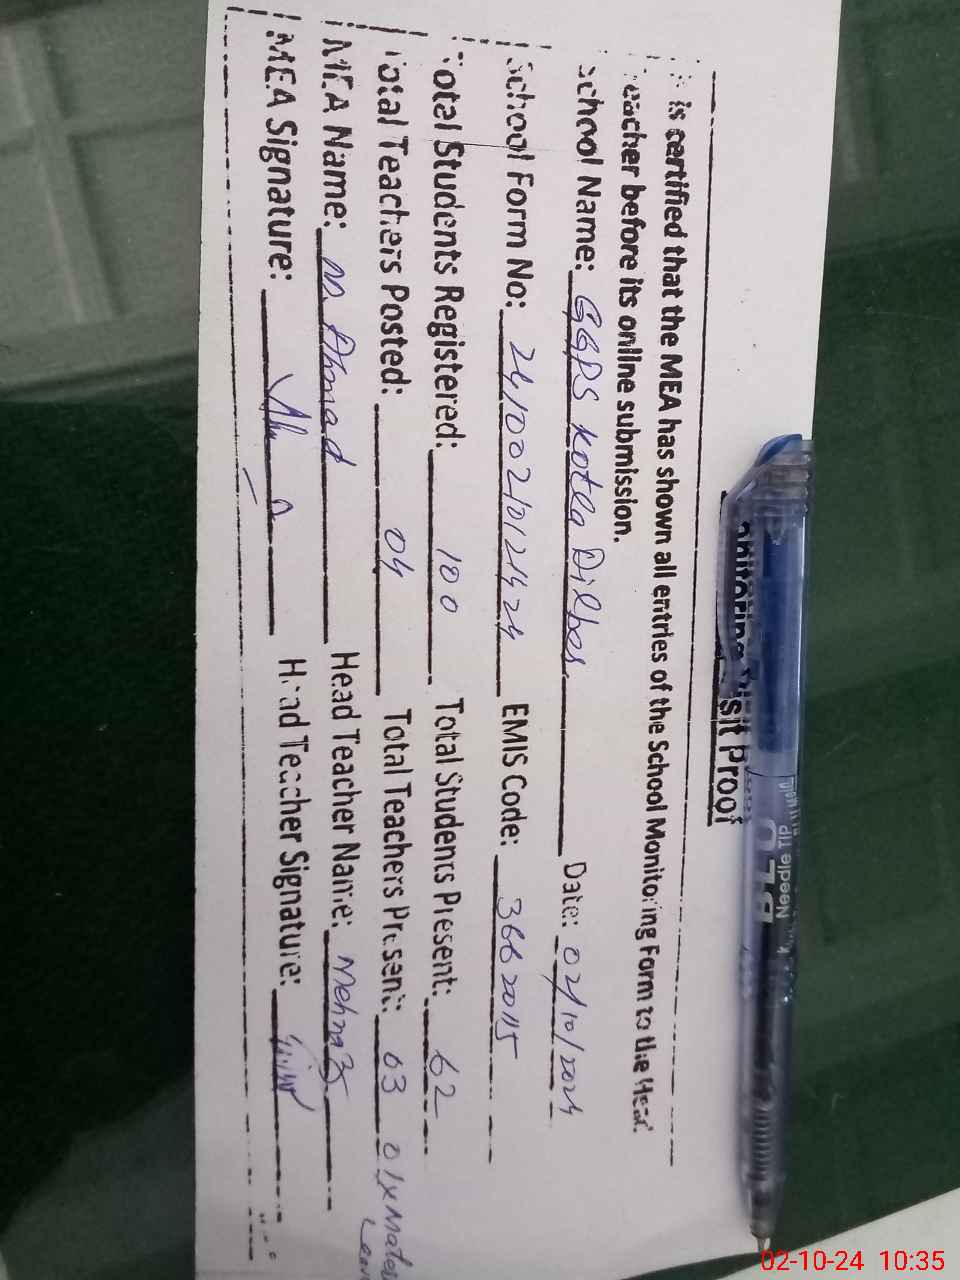 sit Proof
is certified that the MEA has shown all entries of the School Monitoring Form to the Head
eacher before its online submission.
School Name: GGPS Kotla Dilber Date: 02/10/2024
School Form No: EMIS Code:
Total Students Registered: 100 Total Students Present: 62
Total Teachers Posted: 04 Total Teachers Present: 03 01x
MEA Name: M. Ahmad Head Teacher Name: Mehnaz
MEA Signature: Head Teacher Signature:
Needle Tip
02-10-24 10:35